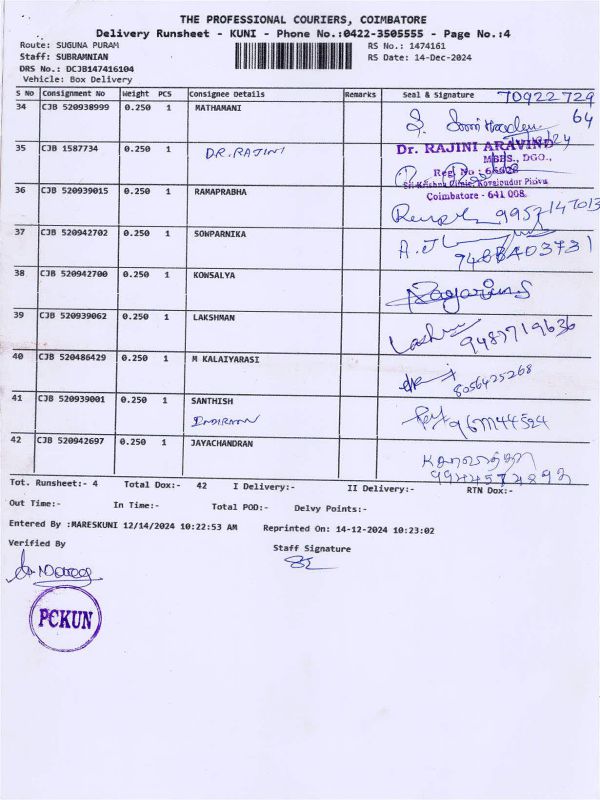 THE PROFESSIONAL COURIERS, COIMBATORE
Delivery Runsheet - KUNI - Phone No.:0422-3505555 - Page No.:4
Route: SUGUNA PURAM
RS No.: 1474161
Staff: SUBRAMNIAN
RS Date: 14-Dec-2024
DRS No.: DCJB147416104
Vehicle: Box Delivery
S No Consignment No Weight PCS Consignee Details Remarks Seal & Signature
70922729
64
34 CJB 520938999 0.250 1 MATHAMANI
35 CJB 1587734 0.250 1 DR.RAJINI
Dr. RAJINI ARAVIND
MBBS., DGO.,
Coimbatore - 641 008.
36 CJB 520939015 0.250 1 RAMAPRABHA
9952147013
37 CJB 520942702 0.250 1 SOWPARNIKA
38 CJB 520942700 0.250 1 KOWSALYA
39 CJB 520939062 0.250 1 LAKSHMAN
9487719636
40 CJB 520486429 0.250 1 M KALAIYARASI
8056425268
41 CJB 520939001 0.250 1 SANTHISH
42 CJB 520942697 0.250 1 JAYACHANDRAN
Tot. Runsheet:- 4 Total Dox:- 42 I Delivery:- II Delivery:- RTN Dox:-
Out Time:- In Time:- Total POD:- Delvy Points:-
Entered By :MARESKUNI 12/14/2024 10:22:53 AM Reprinted On: 14-12-2024 10:23:02
Verified By
Staff Signature
PCKUN